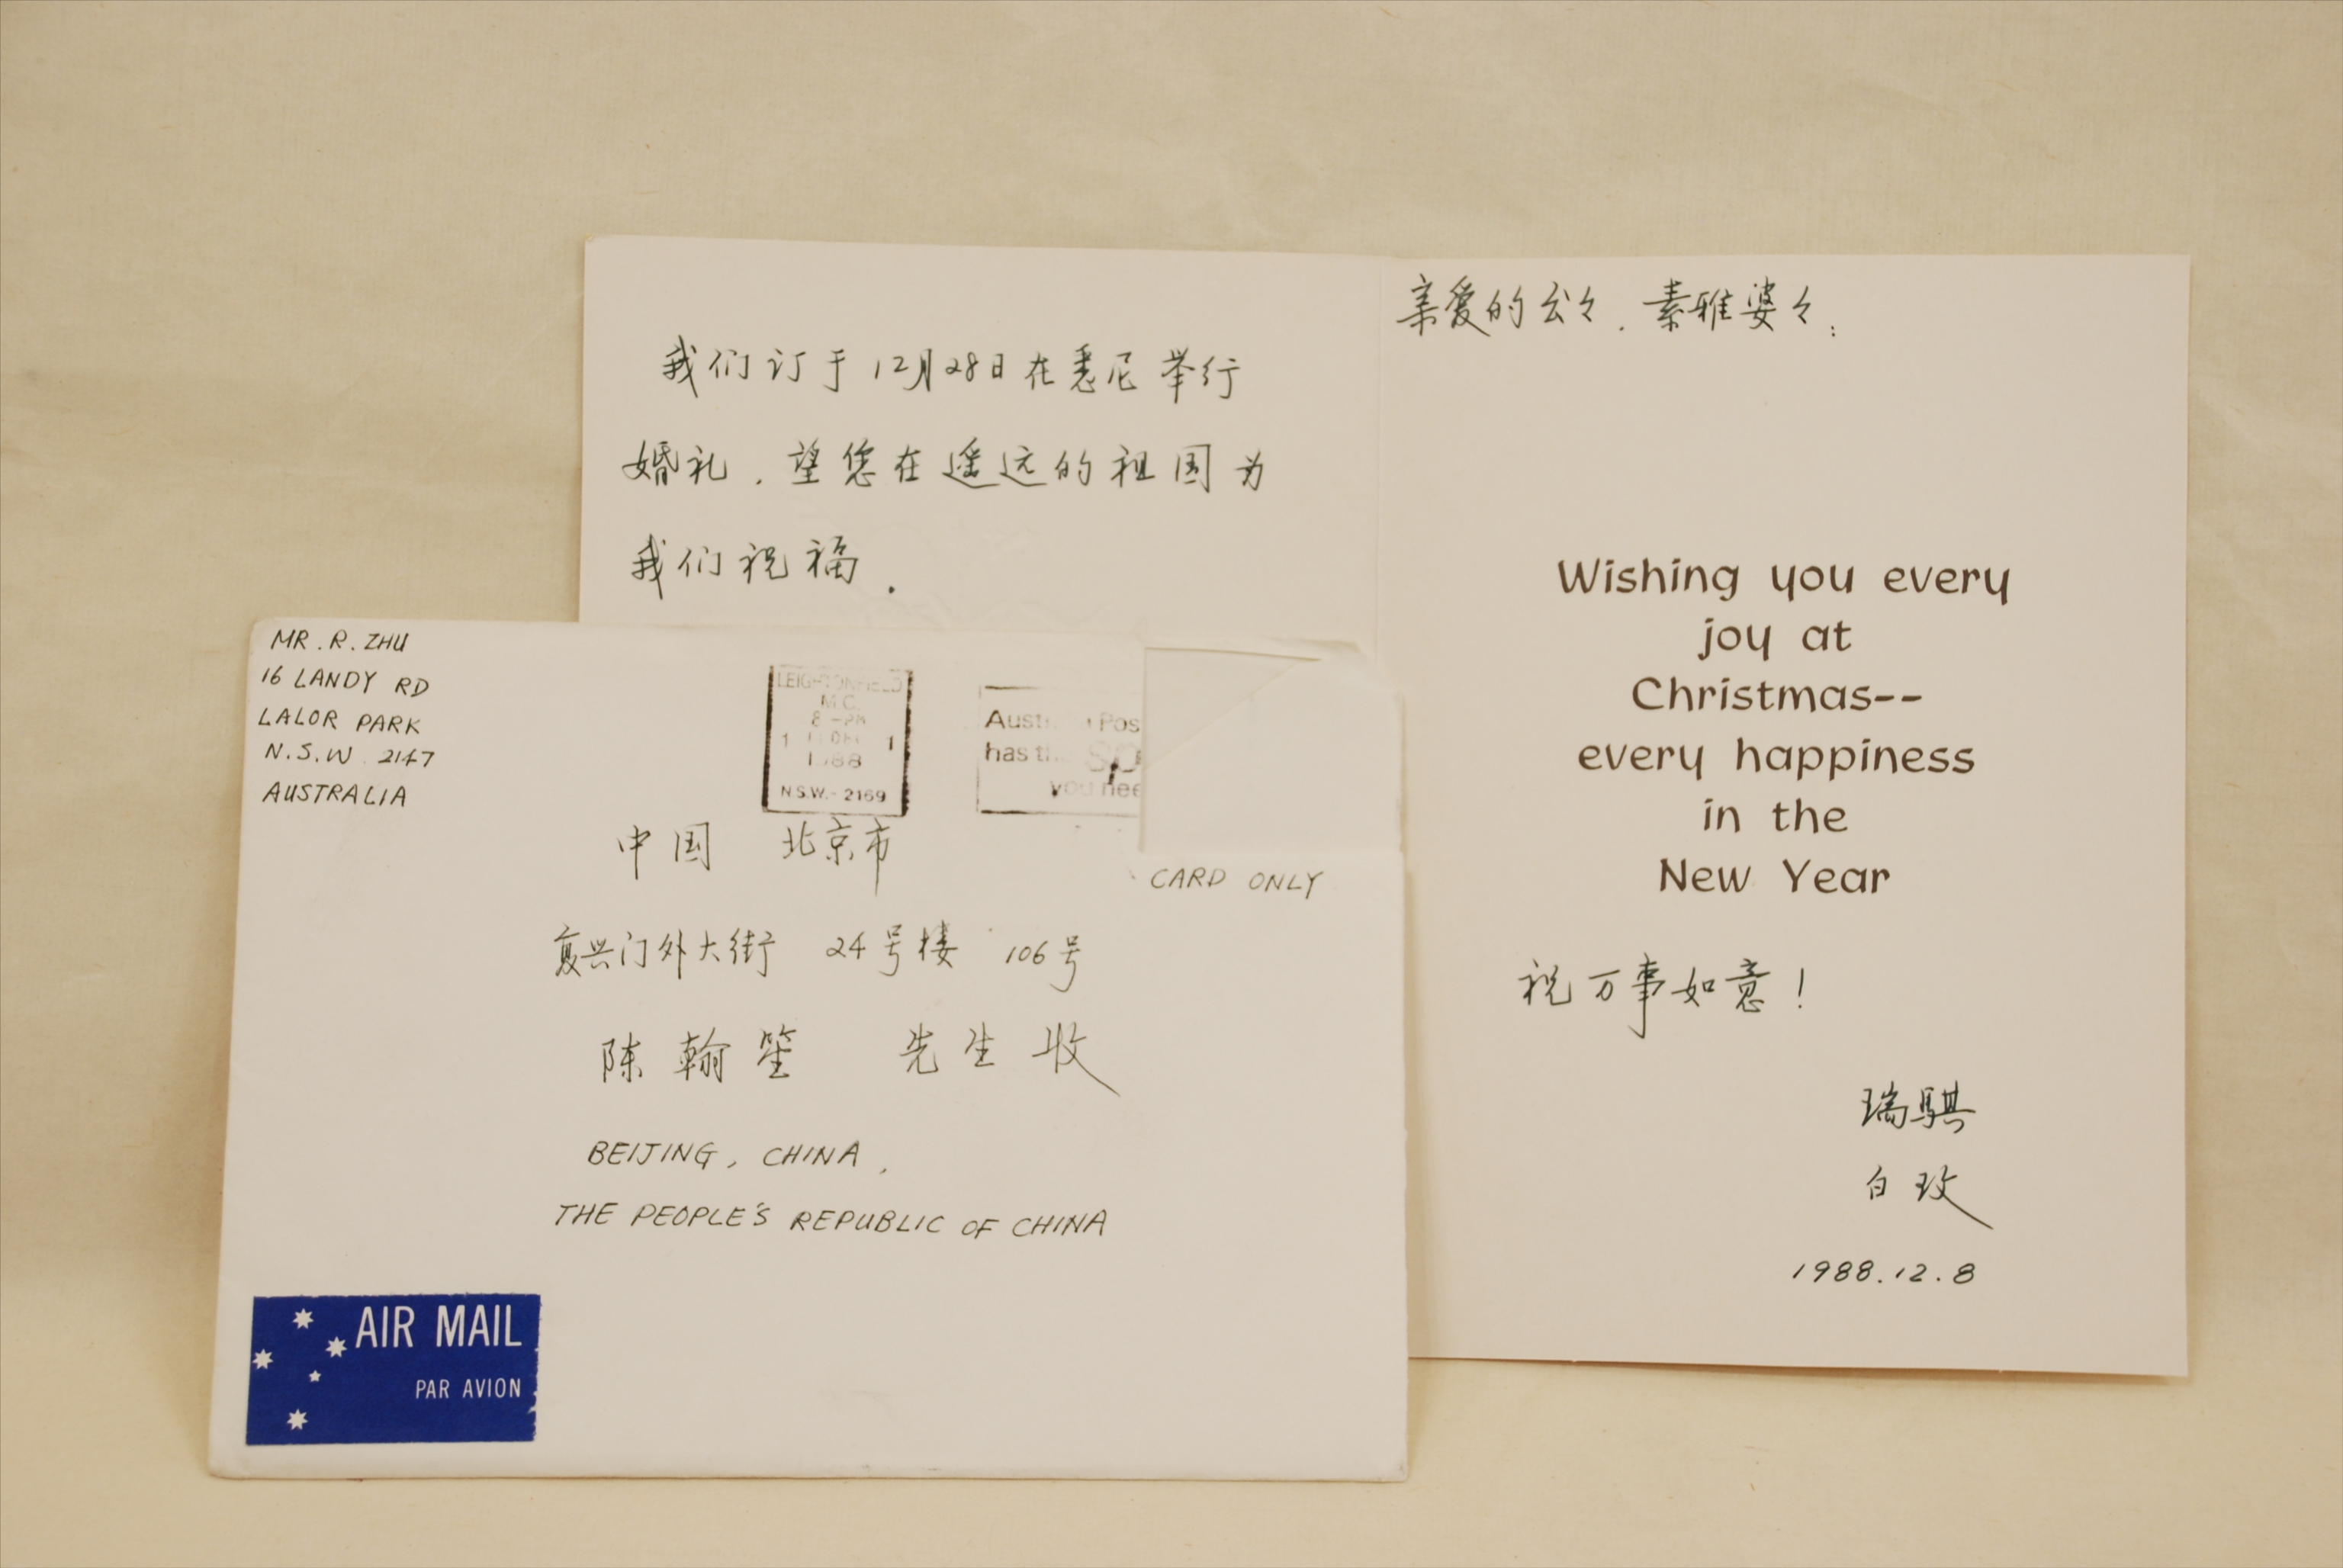 亲爱的公々.素雅婆々:
我们订于12月28日在悉尼举行
婚礼.望您在遥远的祖国为
我们祝福.
Wishing you every
joy at
Christmas--
every happiness
in the
New Year
祝万事如意!
瑞骐
白玫
1988.12.8
MR.R.ZHU
16 LANDY RD
LALOR PARK
N.S.W 2147
AUSTRALIA
M.C.
1988
N.S.W.-2169
has
中国 北京市
CARD ONLY
复兴门外大街 24号楼 106号
陈翰笙 先生收
BEIJING, CHINA,
THE PEOPLE'S REPUBLIC OF CHINA
AIR MAIL
PAR AVION